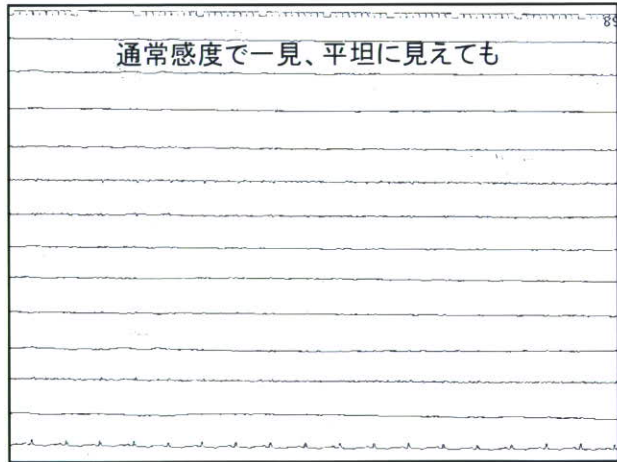 89
通常感度で一見、平坦に見えても